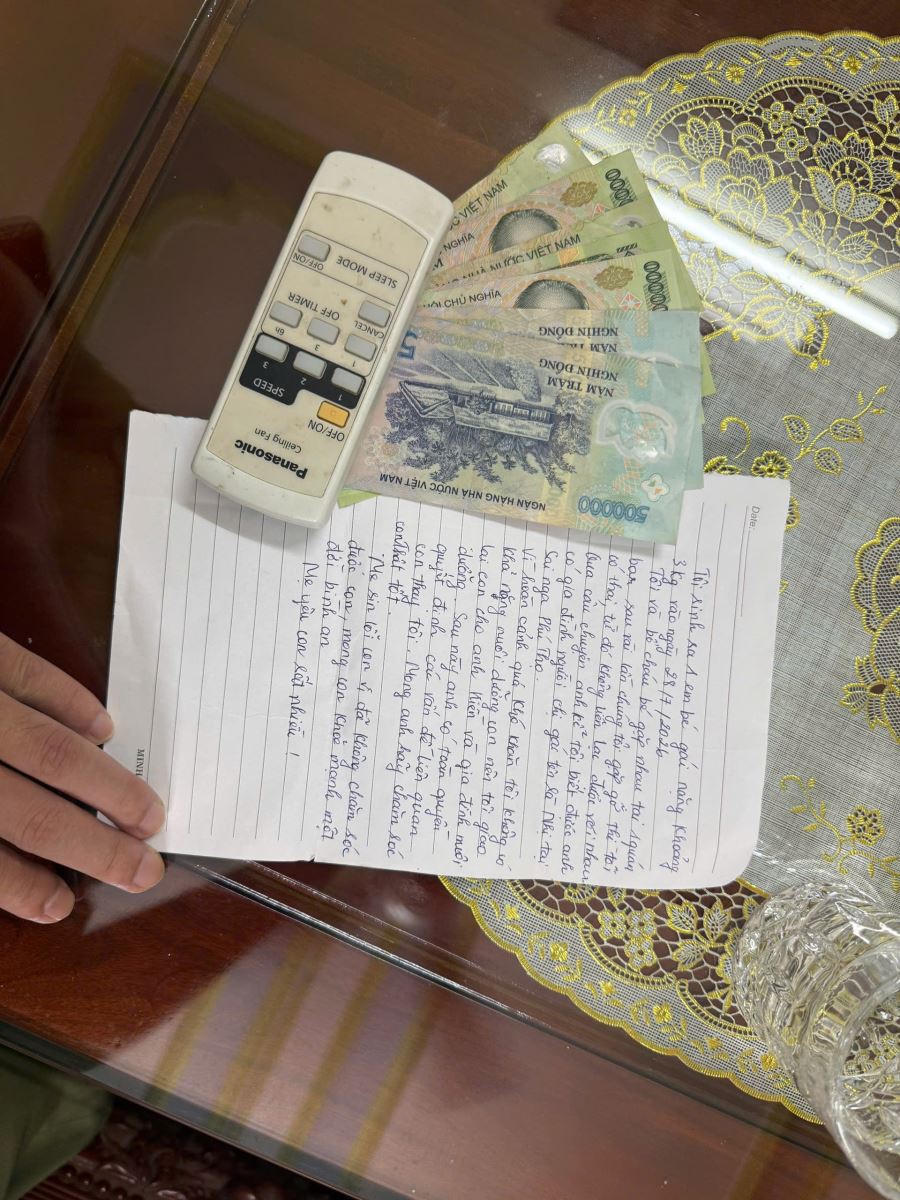 Date:
Tôi sinh ra 1 em bé gái nặng khoảng
3kg vào ngày 28/7/2026
Tôi và bố cháu bé gặp nhau tại quán
bar, sau vài lần chúng tôi gặp gỡ thì tôi
có thai, từ đó không liên lạc được với nhau
Qua câu chuyện anh kể tôi biết được anh
có gia đình người chị gái tên là Nhi tại
Sai nga Phú Thọ.
Vì hoàn cảnh quá khó khăn tôi không có
khả năng nuôi dưỡng con nên tôi giao
lại con cho anh Hiên và gia đình nuôi
dưỡng. Sau này anh có toàn quyền
quyết định các vấn đề liên quan
con thay tôi. Mong anh hãy chăm sóc
con thật tốt.
Mẹ sin lỗi con vì đã không chăm sóc
được con, mong con khoẻ mạnh một
đời bình an
Mẹ yêu con rất nhiều!
MINH
Panasonic
Ceiling Fan
OFF/ON
SPEED
1
2
3
1
3
6h
CANCEL
OFF TIMER
OFF/ON
SLEEP MODE
NGÂN HÀNG NHÀ NƯỚC VIỆT NAM
500000
NĂM TRĂM
NGHÌN ĐỒNG
NGHÌN ĐỒNG
CHỦ NGHĨA
NHÀ NƯỚC VIỆT NAM
NGHĨA
VIỆT NAM